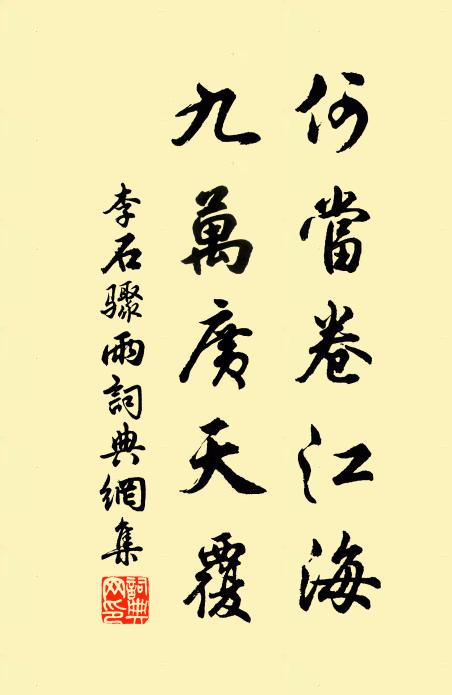 何當卷江海
九萬廣天覆
李石驟雨詞典網集
詞典網印